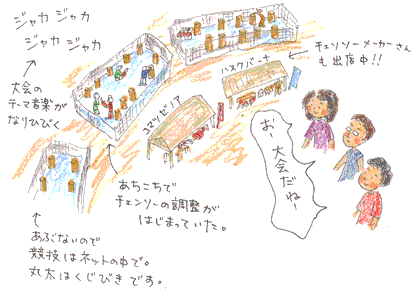 ジャカ ジャカ
ジャカ ジャカ
大会の
テーマ音楽が
なりひびく
チェンソーメーカーさん
も出店中!!
ハスクバーナ
コマツゼノア
お〜
大会だね〜
あちこちで
チェンソーの調整が
はじまっていた。
あぶないので
競技はネットの中で。
丸太はくじびきです。